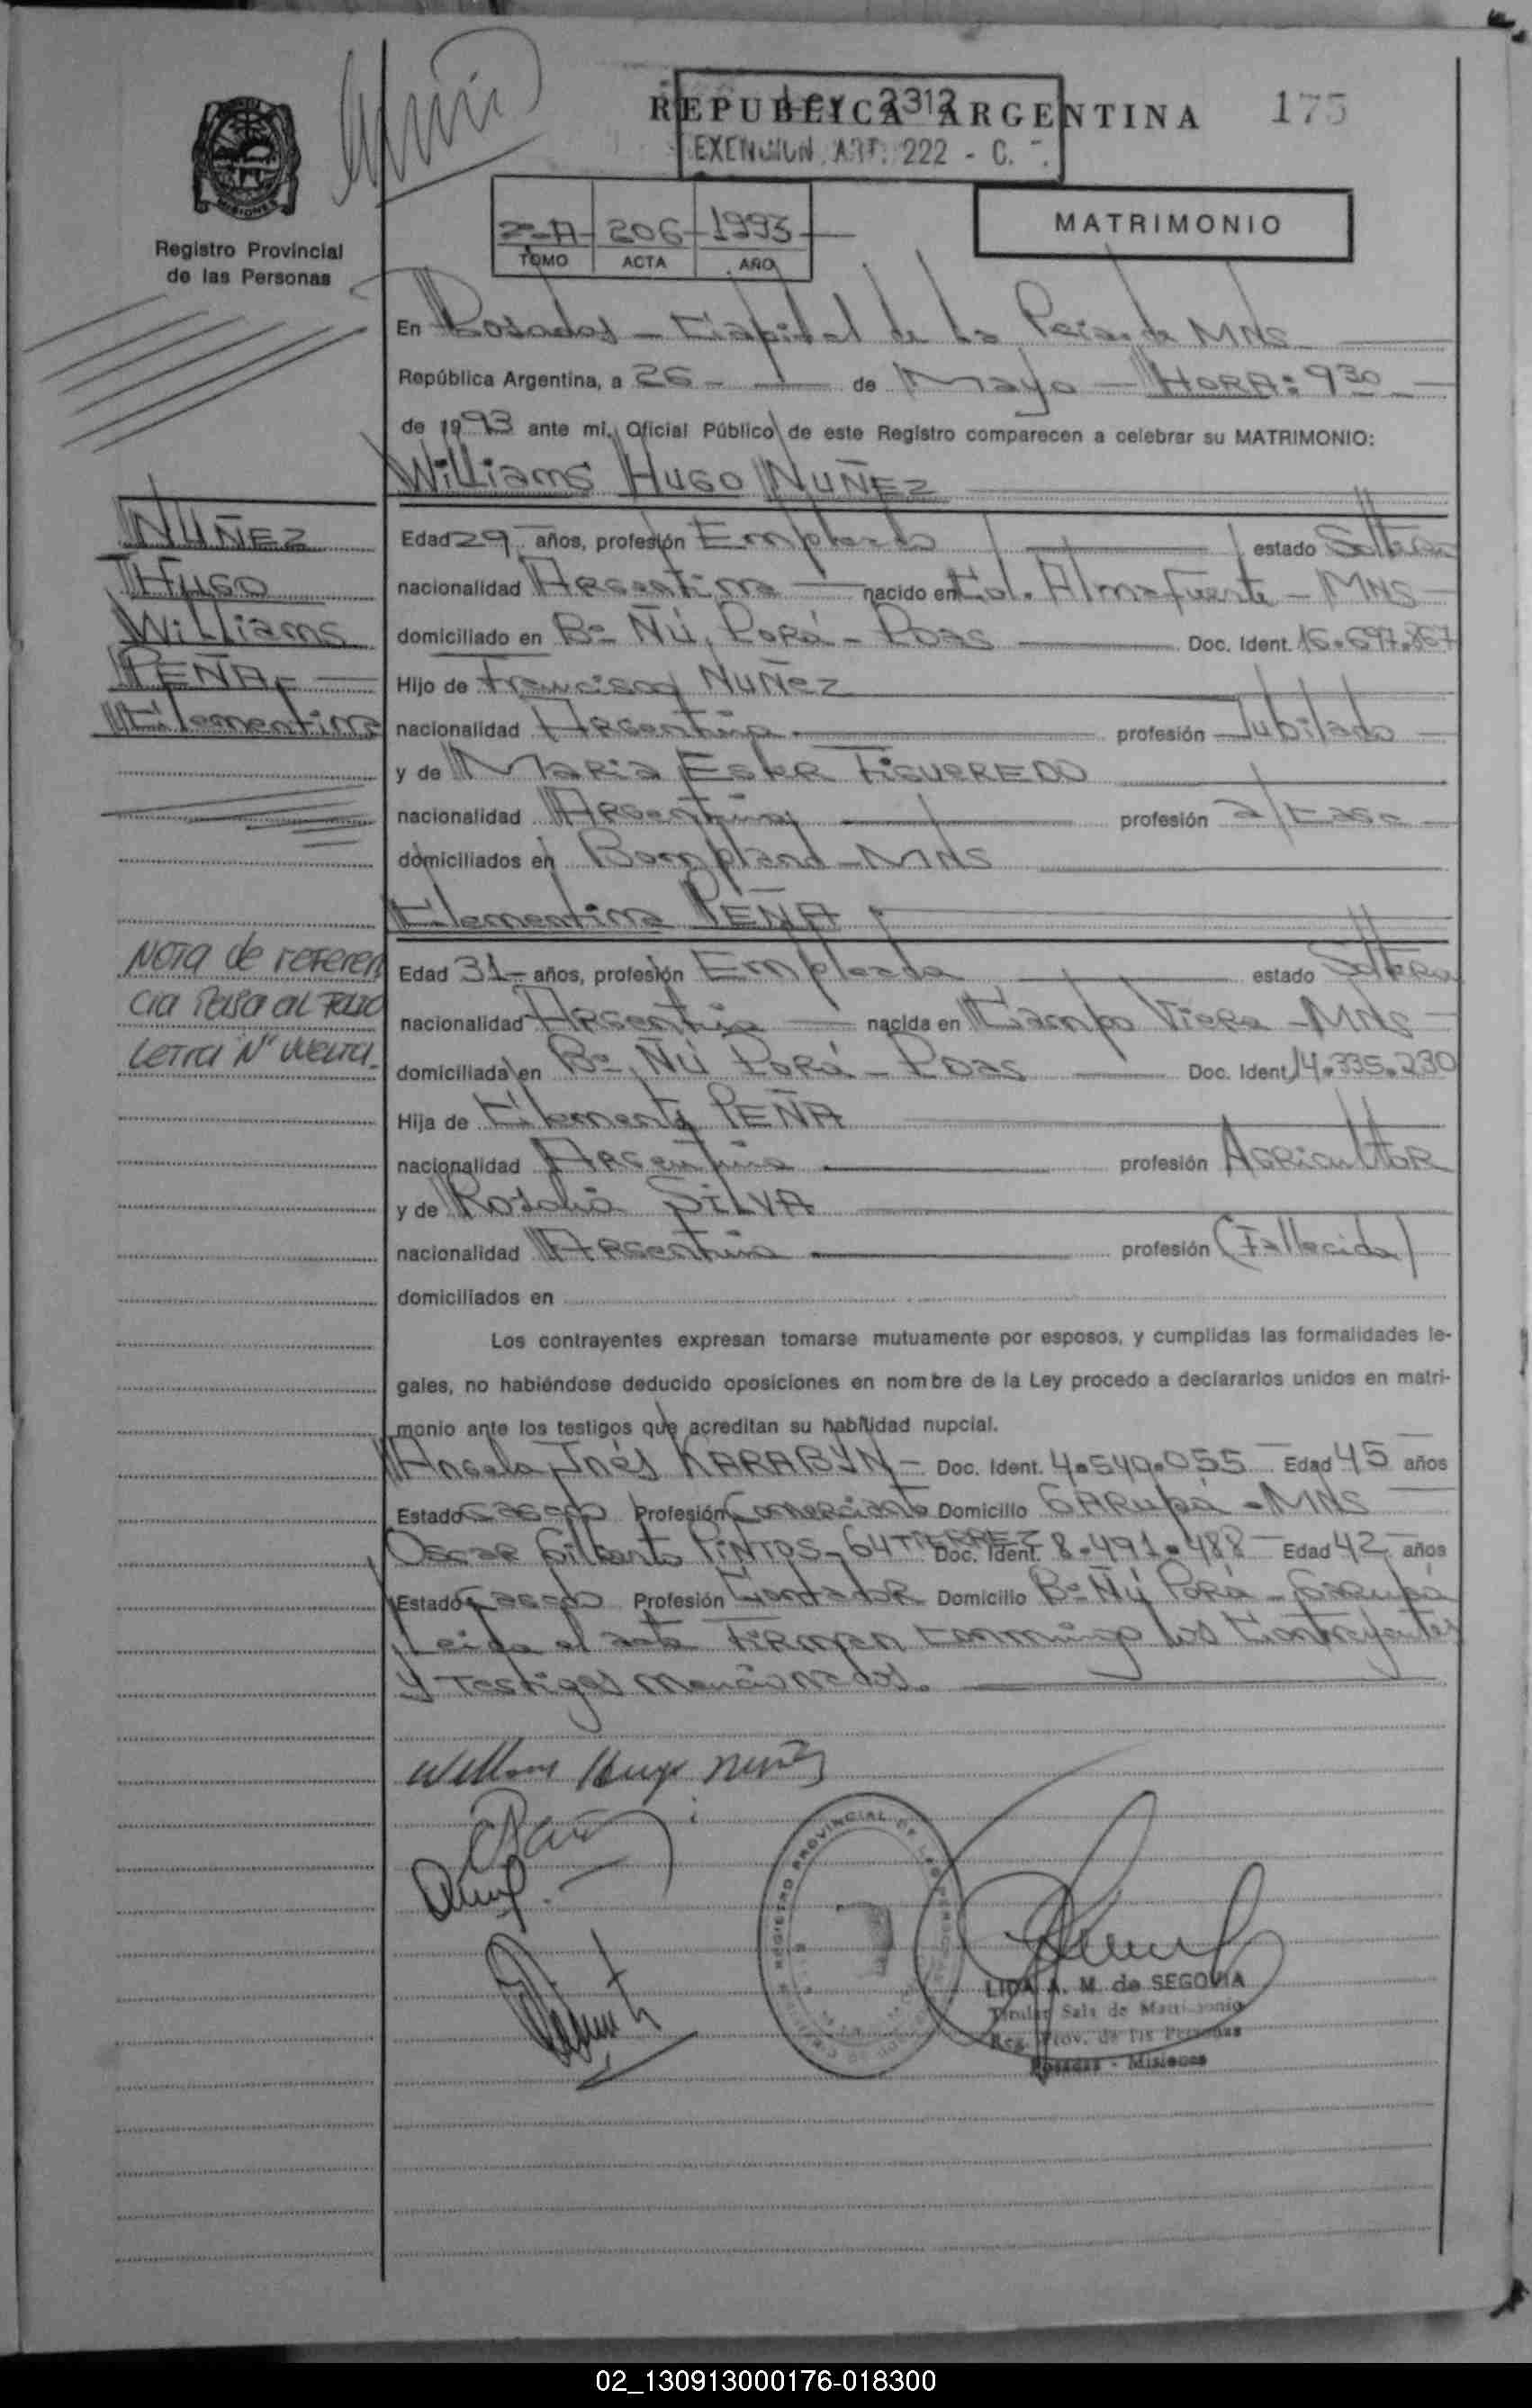 REPUBLICA ARGENTINA
175
Ley 2312
EXENCION ART. 222 - C.
MISIONES
Registro Provincial
de las Personas
2-A- 206 - 1993
TOMO ACTA AÑO
MATRIMONIO
En Posadas - Capital de La Pcia. de MNS
República Argentina, a 26 - de Mayo - HORA: 9 30
de 1993 ante mi, Oficial Público de este Registro comparecen a celebrar su MATRIMONIO:
Williams HUGO NUÑEZ
NUÑEZ
Hugo
Williams
PEÑA,
Clementina
Edad 29 años, profesión Empleado estado Soltero
nacionalidad Argentina nacido en Col. Almafuerte - MNS
domiciliado en Bº Ñú Porá - Pdas Doc. Ident. 16.697.867
Hijo de Francisco NUÑEZ
nacionalidad Argentina profesión Jubilado
y de Maria Ester FIGUEREDO
nacionalidad Argentina profesión a/casa
domiciliados en Bompland - MNS
Clementina PEÑA
NOTA de referen
cia Pasa al Folio
Letra Nº vuelta.
Edad 31 - años, profesión Empleada estado Soltera
nacionalidad Argentina nacida en Campo Viera - MNS
domiciliada en Bº Ñú Porá - Pdas Doc. Ident. 14.335.230
Hija de Clemente PEÑA
nacionalidad Argentina profesión Agricultor
y de Rosalia SILVA
nacionalidad Argentina profesión (Fallecida)
domiciliados en
Los contrayentes expresan tomarse mutuamente por esposos, y cumplidas las formalidades le-
gales, no habiéndose deducido oposiciones en nombre de la Ley procedo a declararlos unidos en matri-
monio ante los testigos que acreditan su habilidad nupcial.
Angela Inés KARABYN - Doc. Ident. 4.540.055 Edad 45 años
Estado casado Profesión Comerciante Domicilio GARUPÁ - MNS
Oscar Gilberto PINTOS - GUTIERREZ Doc. Ident. 8.491.488 Edad 42 años
Estado casado Profesión Contador Domicilio Bº Ñú Porá - Garupá
Leida el acta Firman conmigo los Contrayentes
y Testigos mencionados.
Williams Hugo Nuñez
REGISTRO PROVINCIAL DE LAS PERSONAS
LIDA A. M. de SEGOVIA
Titular Sala de Matrimonio
Reg. Prov. de las Personas
Posadas - Misiones
02_130913000176-018300